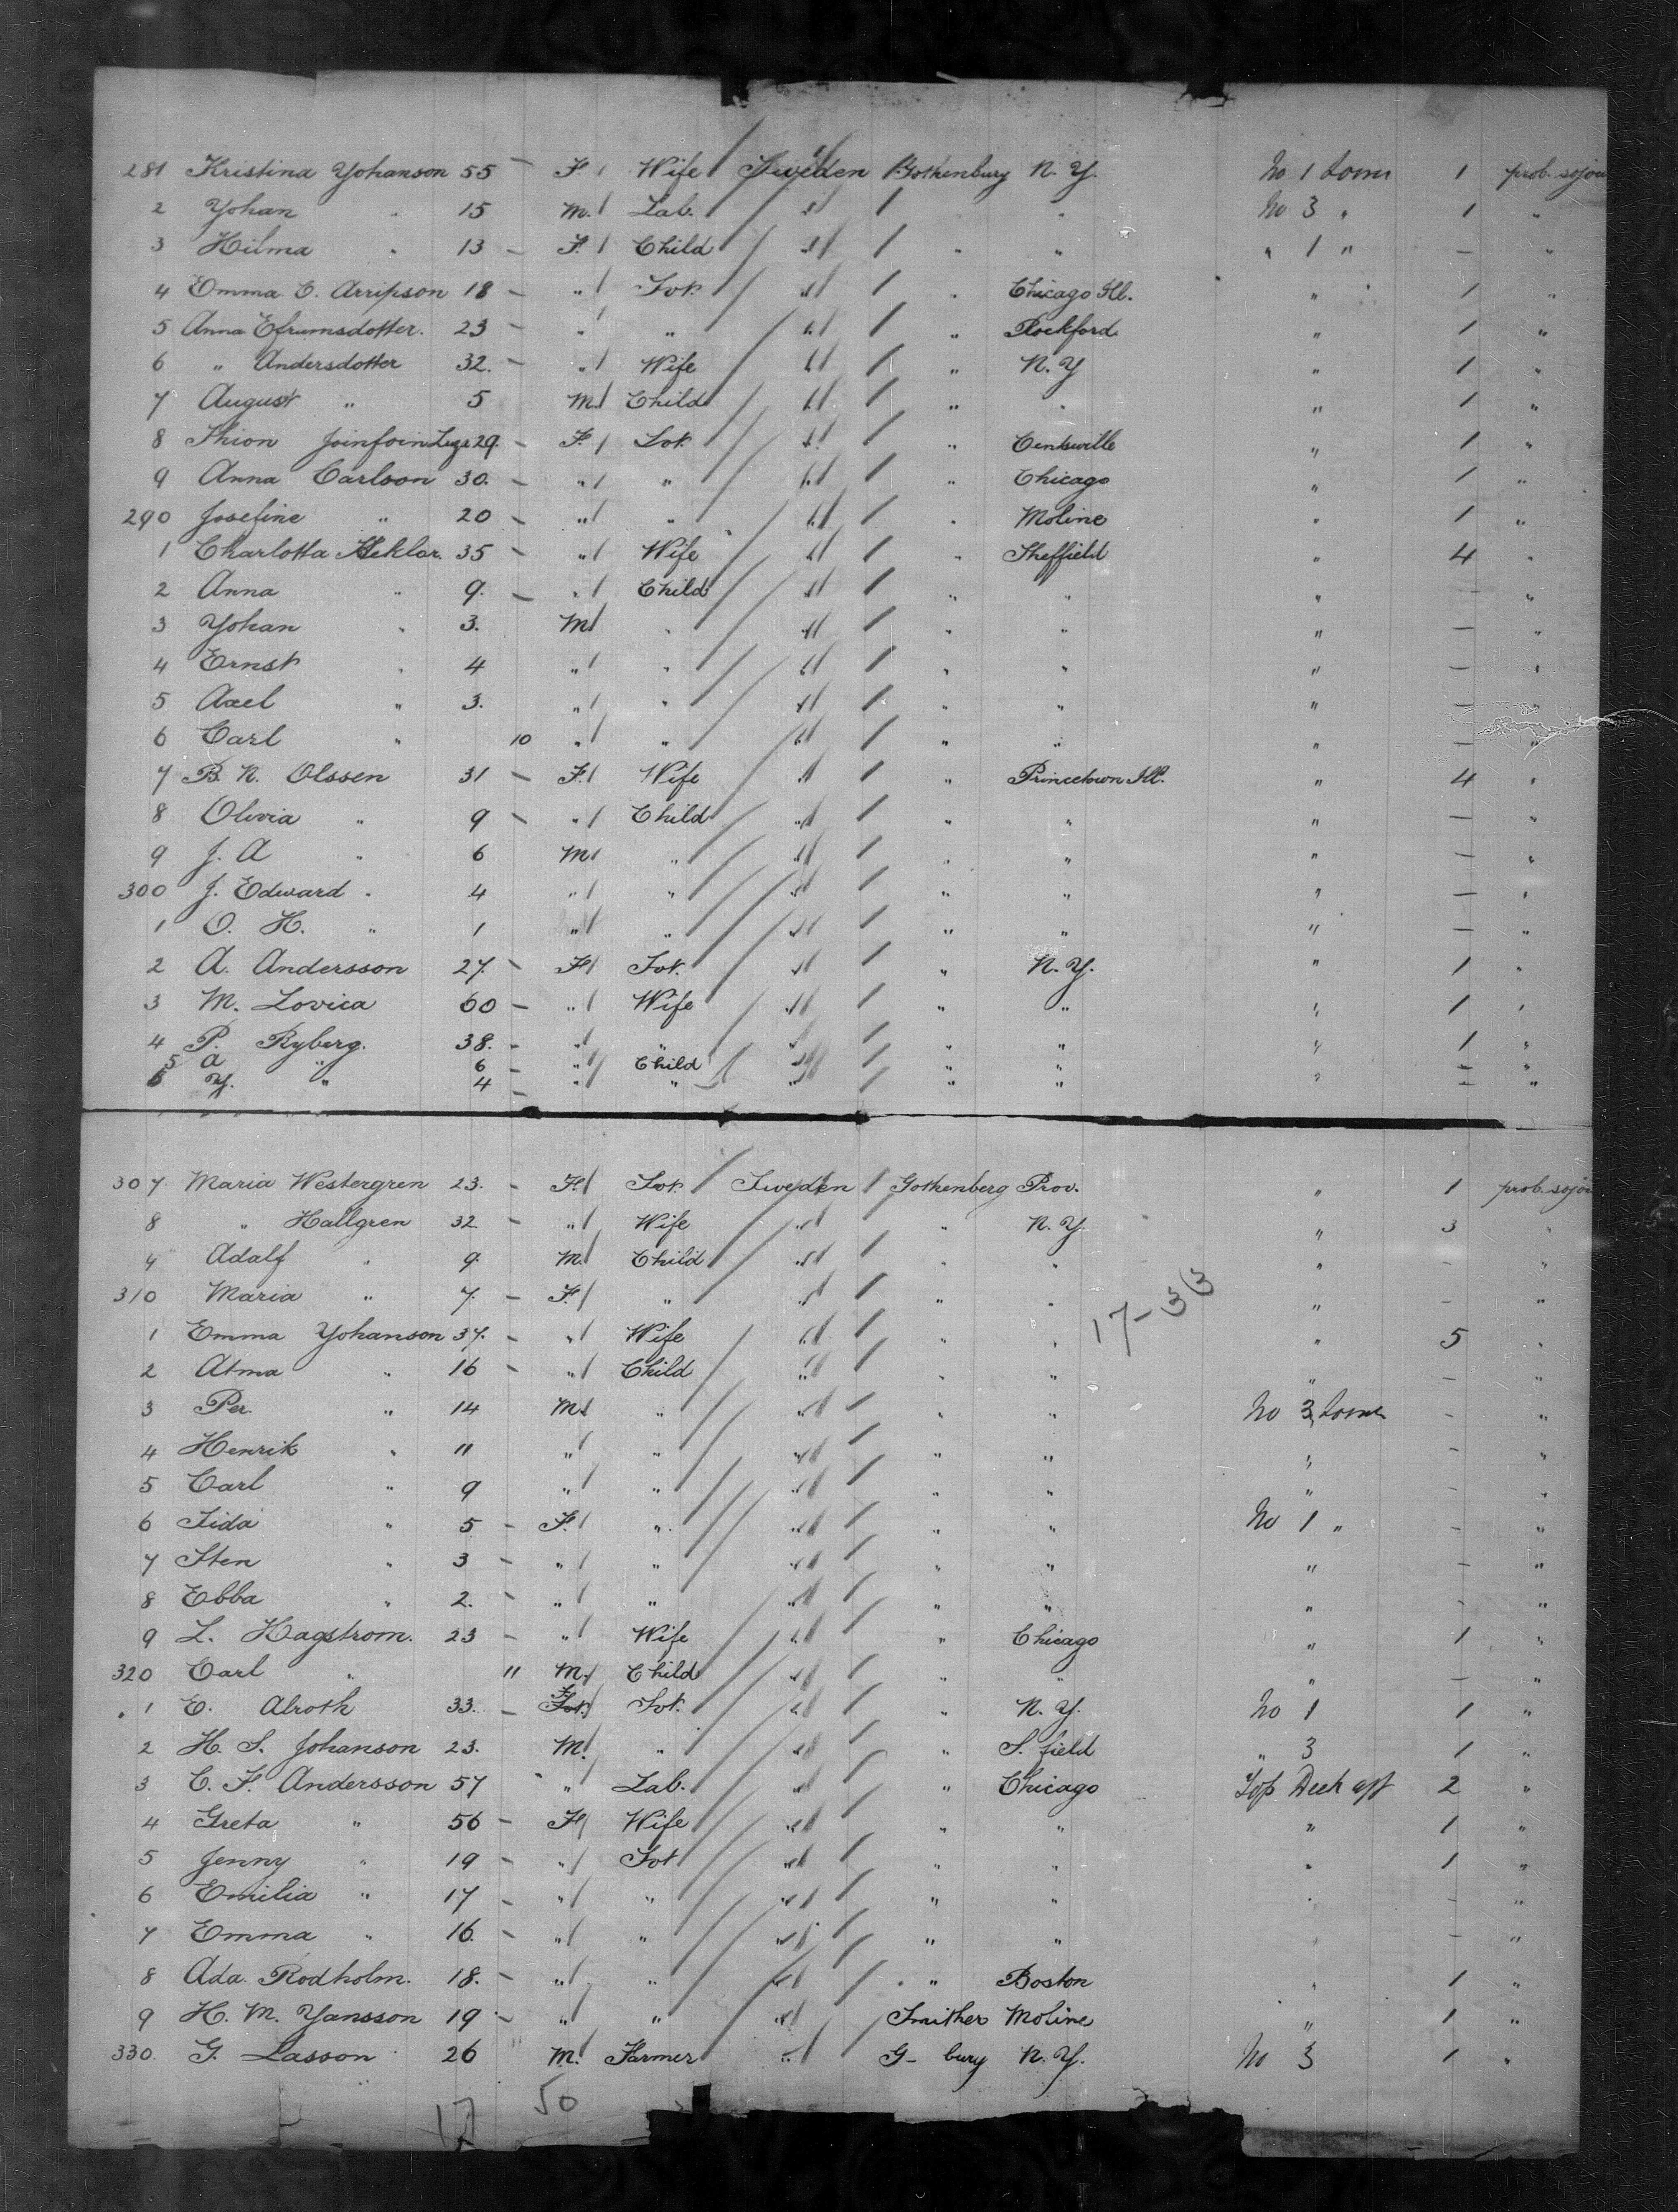 281 Kristina Yohanson 55 — F Wife Sweden Gothenburg N. Y. No 1 1 prob. sojou
2 Yohan " 15 M. Lab. " " No 3 " 1 "
3 Hilma " 13 — F. Child " " " " 1 " — "
4 Emma C. Arripson 18 — " " " Chicago Ill. " 1 "
5 Anna Efrumsdotter. 23 — " " " " Rockford " 1 "
6 " Andersdotter 32. — " Wife " " N. Y " 1 "
7 August " 5 M. Child " " " " 1 "
8 29. — F. " " " 1 "
9 Anna Carlson 30. — " " " " Chicago " 1 "
290 Josefine " 20 — " " " " Moline " 1 "
1 Charlotta Heklar. 35 — " Wife " " Sheffield " 4 "
2 Anna " 9. — " Child " " " " — "
3 Yohan " 3. M " " " " " — "
4 Ernst " 4 " " " " " " — "
5 Axel " 3. " " " " " " — "
6 Carl " 10 " " " " " " — "
7 B. N. Olssen 31 — F. Wife " " Princetown Ill. " 4 "
8 Olivia " 9 — " Child " " " " — "
9 J. A " 6 M " " " " " — "
300 J. Edward " 4 " " " " " " — "
1 O. H. " 1 " " " " " " — "
2 A. Andersson 27. — F " " N. Y. " 1 "
3 M. Lovica 60 — " Wife " " " " 1 "
4 P. Ryberg. 38. — " " " " " " 1 "
5 a " 6 — " Child " " " " — "
6 Y. " 4 — " " " " " " — "
307 Maria Westergren 23. — F. Sweden Gothenberg Prov. " 1 prob. sojou
8 " Hallgren 32 — " Wife " " N. Y. " 3 "
9 Adalf " 9. M. Child " " " " — "
310 Maria " 7. — F. " " " " " — "
17-33
1 Emma Yohanson 37. — " Wife " " " " 5 "
2 Atma " 16 — " Child " " " " — "
3 Per. " 14 M. " " " " No 3 — "
4 Henrik " 11 " " " " " " — "
5 Carl " 9 " " " " " " — "
6 Tida " 5 — F. " " " " No 1 " — "
7 Sten " 3 — " " " " " " — "
8 Ebba " 2. — " " " " " " — "
9 L. Hagstrom. 23 — " Wife " " Chicago " 1 "
320 Carl " 11 M. Child " " " " — "
1 E. Alroth 33. — F " " N. Y. No 1 1 "
2 H. S. Johanson 23. M. " " " S. field " 3 1 "
3 C. F. Andersson 57 " Lab. " " Chicago 2 "
4 Greta " 56 — F Wife " " " " 1 "
5 Jenny " 19 — " " " " " 1 "
6 Emilia " 17 — " " " " " " — "
7 Emma " 16. — " " " " " " — "
8 Ada. Rodholm. 18. — " " " " Boston " 1 "
9 H. M. Yansson 19 — " " " Moline " 1 "
330. G. Lasson 26 M. Farmer " G- bury N. Y. No 3 1 "
17 50